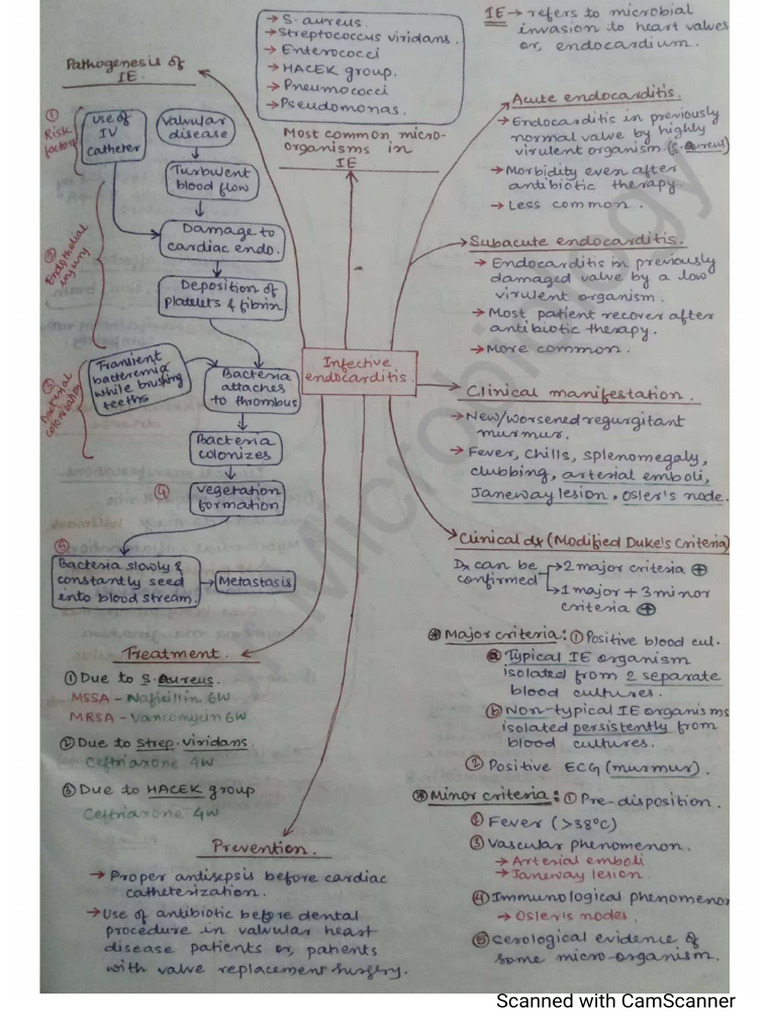 → S. aureus
→ Streptococcus viridans.
→ Enterococci
→ HACEK group.
→ Pneumococci
→ Pseudomonas.
Most common micro-
organisms in
IE
IE → refers to microbial
invasion to heart valves
or, endocardium.
Pathogenesis of
IE.
① Risk
factors
use of
IV
catheter
Valvular
disease
Turbulent
blood flow
② Endothelial
injury
Damage to
cardiac endo.
Deposition of
Platelets & fibrin
③ Bacterial
colonization
Transient
bacteremia
while brushing
teeths
Bacteria
attaches
to thrombus
Bacteria
colonizes
④ vegetation
formation
⑤
Bacteria slowly &
constantly seed
into blood stream.
→ Metastasis
Infective
endocarditis.
Acute endocarditis.
→ Endocarditis in previously
normal valve by highly
virulent organism. (S. aureus)
→ Morbidity even after
antibiotic therapy.
→ Less common.
Subacute endocarditis.
→ Endocarditis in previously
damaged valve by a low
virulent organism.
→ Most patient recover after
antibiotic therapy.
→ More common.
Clinical manifestation.
→ New/worsened regurgitant
murmur.
→ Fever, chills, splenomegaly,
clubbing, arterial emboli,
Janeway lesion, Osler's node.
Clinical dx (Modified Duke's Criteria)
Dx can be
confirmed
→ 2 major criteria ⊕
→ 1 major + 3 minor
criteria ⊕
⊛ Major criteria: ① Positive blood cul.
ⓐ Typical IE organism
isolated from 2 separate
blood cultures.
ⓑ Non-typical IE organisms
isolated persistently from
blood cultures.
② Positive ECG (murmur).
⊛ Minor criteria: ① Pre-disposition.
② Fever (>38°C)
③ Vascular phenomenon.
→ Arterial emboli
→ Janeway lesion.
④ Immunological phenomenon
→ Osler's nodes.
⑤ Serological evidence of
some micro-organism.
Treatment.
① Due to S. aureus.
MSSA - Naficillin 6W
MRSA - Vancomycin 6W
② Due to Strep. viridans.
Ceftriaxone 4W
③ Due to HACEK group
Ceftriaxone 4W
Prevention.
→ Proper antisepsis before cardiac
catheterization.
→ Use of antibiotic before dental
procedure in valvular heart
disease patients or, patients
with valve replacement surgery.
Microbiology
Scanned with CamScanner